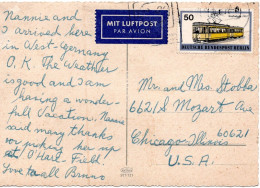 Nannie and
I arrived here
in West-Germany
O.K. The Weather
is good and I am
having a wonder-
full Vacation. Nannie
said many thanks
for picking her up
at O'Hare-Field
Love to all Bruno
MIT LUFTPOST
PAR AVION
50
DEUTSCHE BUNDESPOST BERLIN
Mr. and Mrs. Stobba
6621 S. Mozart Ave
60621
Chicago Illinois
U.S.A.